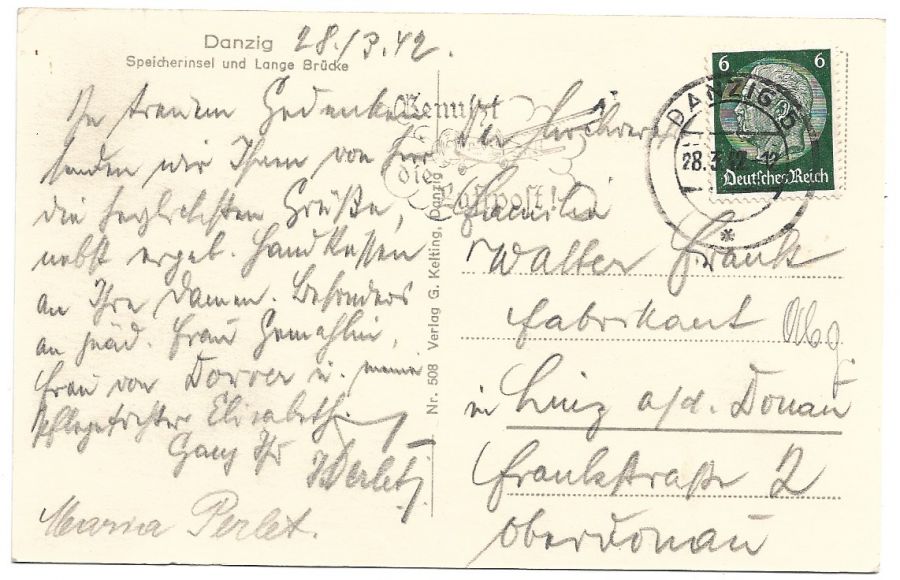 Danzig 28./3.42.
Speicherinsel und Lange Brücke
In treuem Gedenken
senden wir Ihnen von Herzen
die herzlichsten Grüße,
nebst ergeb. Handküssen
an Ihre Damen. Besonders
an gnäd. Frau Gemahlin,
Frau von und meine
Pflegetochter Elisabeth.
Ganz Ihr
Perlet
Maria Perlet.
Nr. 508 Verlag G. Kelting, Danzig
Benutzt
die
Luftpost!
6 6
Deutsches Reich
DANZIG 5
28.3.42
Familie
Walter Frank
Fabrikant
in Linz a/d. Donau
Frankstraße 2
Oberdonau